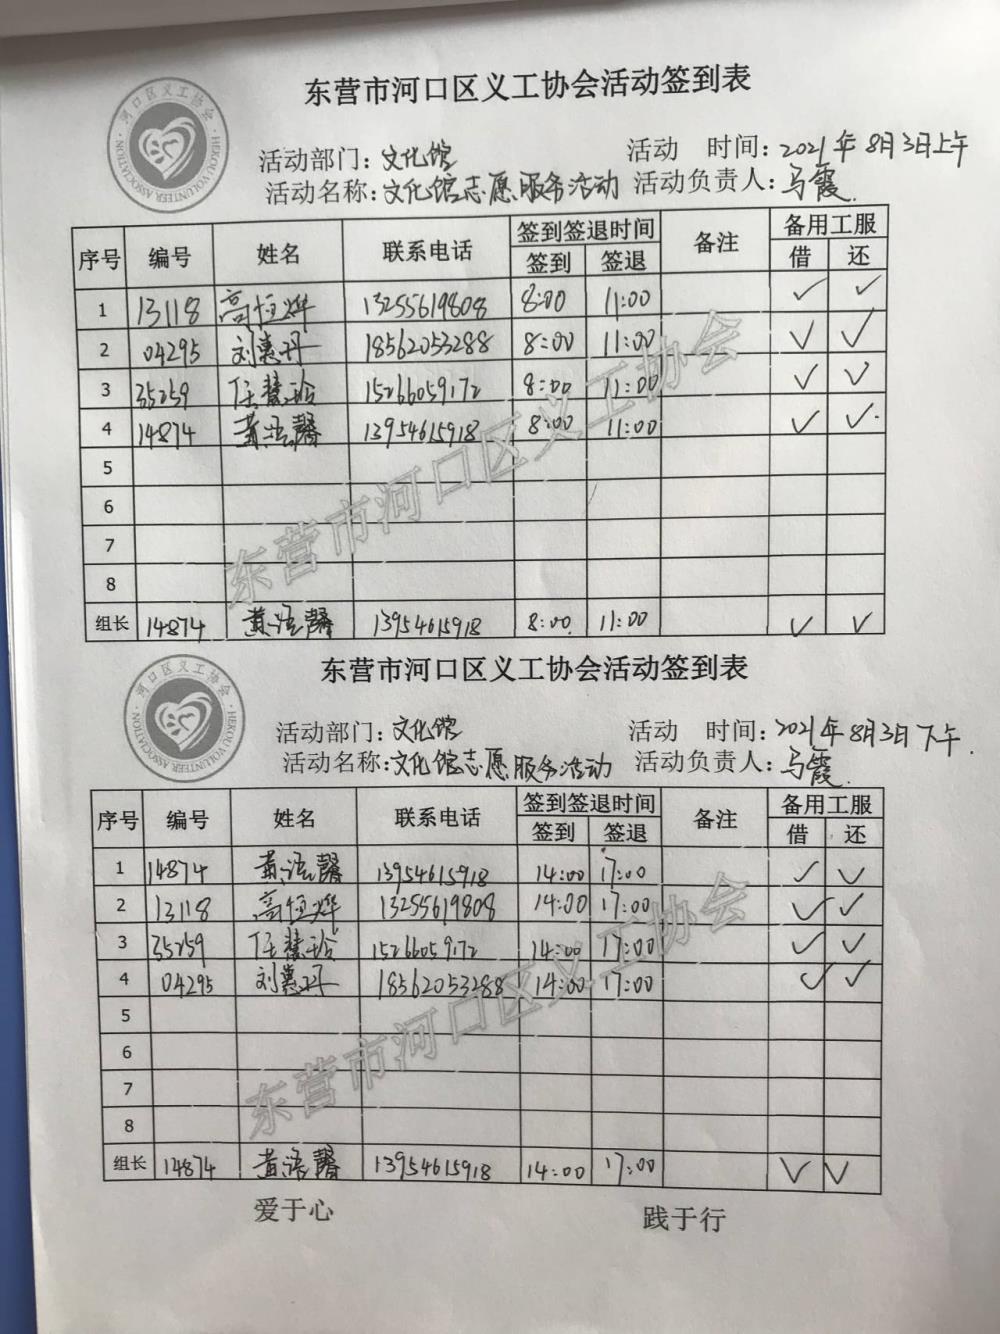 东营市河口区义工协会活动签到表
河口区义工协会
HEKOU VOLUNTEER ASSOCIATION
活动部门：文化馆 活动 时间：2021年8月3日上午
活动名称：文化馆志愿服务活动 活动负责人：马霞.
序号 编号 姓名 联系电话 签到签退时间 备注 备用工服
签到 签退 借 还
1 13118 高恒烨 13255619808 8:00 11:00 ✓ ✓
2 04295 刘惠丹 18562053288 8:00 11:00 ✓ ✓
3 35259 任慧玲 15266059172 8:00 11:00 ✓ ✓
4 14874 黄语馨 13954615918 8:00 11:00 ✓ ✓
5
6
7
8
组长 14874 黄语馨 13954615918 8:00 11:00 ✓ ✓
东营市河口区义工协会
东营市河口区义工协会活动签到表
河口区义工协会
HEKOU VOLUNTEER ASSOCIATION
活动部门：文化馆 活动 时间：2021年8月3日下午.
活动名称：文化馆志愿服务活动 活动负责人：马霞.
序号 编号 姓名 联系电话 签到签退时间 备注 备用工服
签到 签退 借 还
1 14874 黄语馨 13954615918 14:00 17:00 ✓ ✓
2 13118 高恒烨 13255619808 14:00 17:00 ✓ ✓
3 35259 任慧玲 15266059172 14:00 17:00 ✓ ✓
4 04295 刘惠丹 18562053288 14:00 17:00 ✓ ✓
5
6
7
8
组长 14874 黄语馨 13954615918 14:00 17:00 ✓ ✓
东营市河口区义工协会
爱于心 践于行